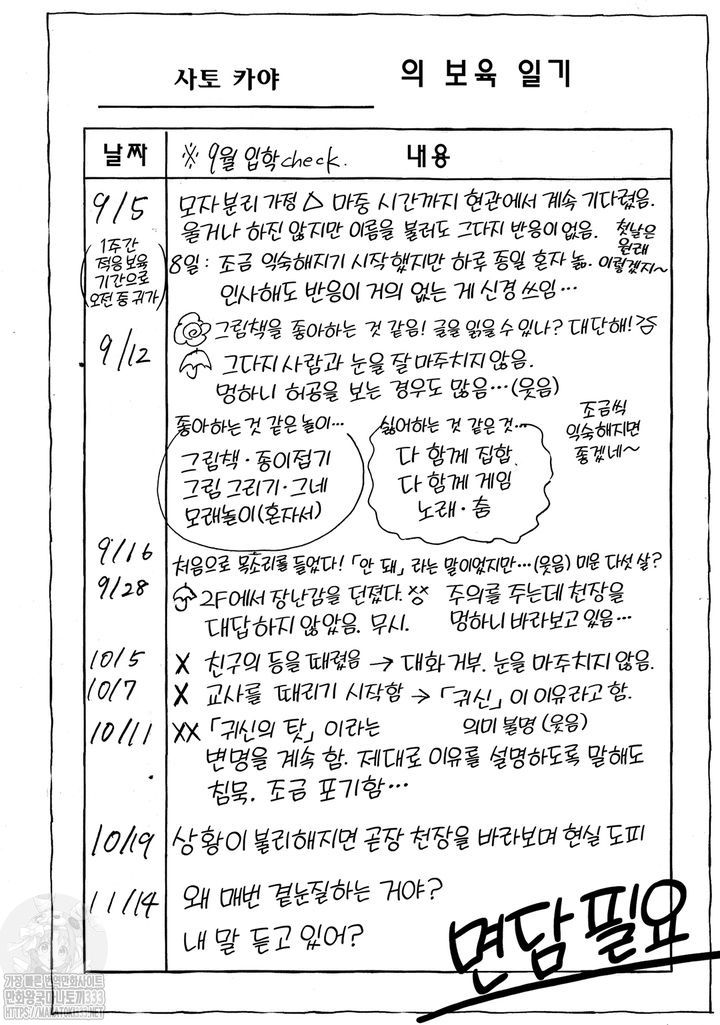 사토 카야 의 보육 일기
날짜 ※ 9월 입학check. 내용
9/5 모자분리 가정 △ 마중 시간까지 현관에서 계속 기다렸음.
울거나 하진 않지만 이름을 불러도 그다지 반응이 없음.
첫날은
원래
이렇겠지~
(1주간
적응보육
기간으로
오전 중 귀가)
8일 : 조금 익숙해지기 시작했지만 하루 종일 혼자 놂.
인사해도 반응이 거의 없는 게 신경 쓰임…
9/12 그림책을 좋아하는 것 같음! 글을 읽을 수 있나? 대단해!
그다지 사람과 눈을 잘 마주치지 않음.
멍하니 허공을 보는 경우도 많음…(웃음)
좋아하는 것 같은 놀이…
그림책·종이접기
그림 그리기·그네
모래놀이(혼자서)
싫어하는 것 같은 것…
다 함께 집합
다 함께 게임
노래·춤
조금씩
익숙해지면
좋겠네~
9/16 처음으로 목소리를 들었다! 「안 돼」 라는 말이었지만…(웃음) 미운 다섯 살?
9/28 2F에서 장난감을 던졌다. ×× 주의를 주는데 천장을
대답하지 않았음. 무시. 멍하니 바라보고 있음…
10/5 X 친구의 등을 때렸음 → 대화 거부. 눈을 마주치지 않음.
10/7 X 교사를 때리기 시작함 → 「귀신」이 이유라고 함.
의미 불명 (웃음)
10/11 XX 「귀신의 탓」 이라는
변명을 계속 함. 제대로 이유를 설명하도록 말해도
침묵. 조금 포기함…
10/19 상황이 불리해지면 곧장 천장을 바라보며 현실 도피
11/14 왜 매번 곁눈질하는 거야?
내 말 듣고 있어?
면담 필요
가장 빠른 번역만화사이트
만화왕국마나토끼333
HTTPS://MANATOKI333.COM